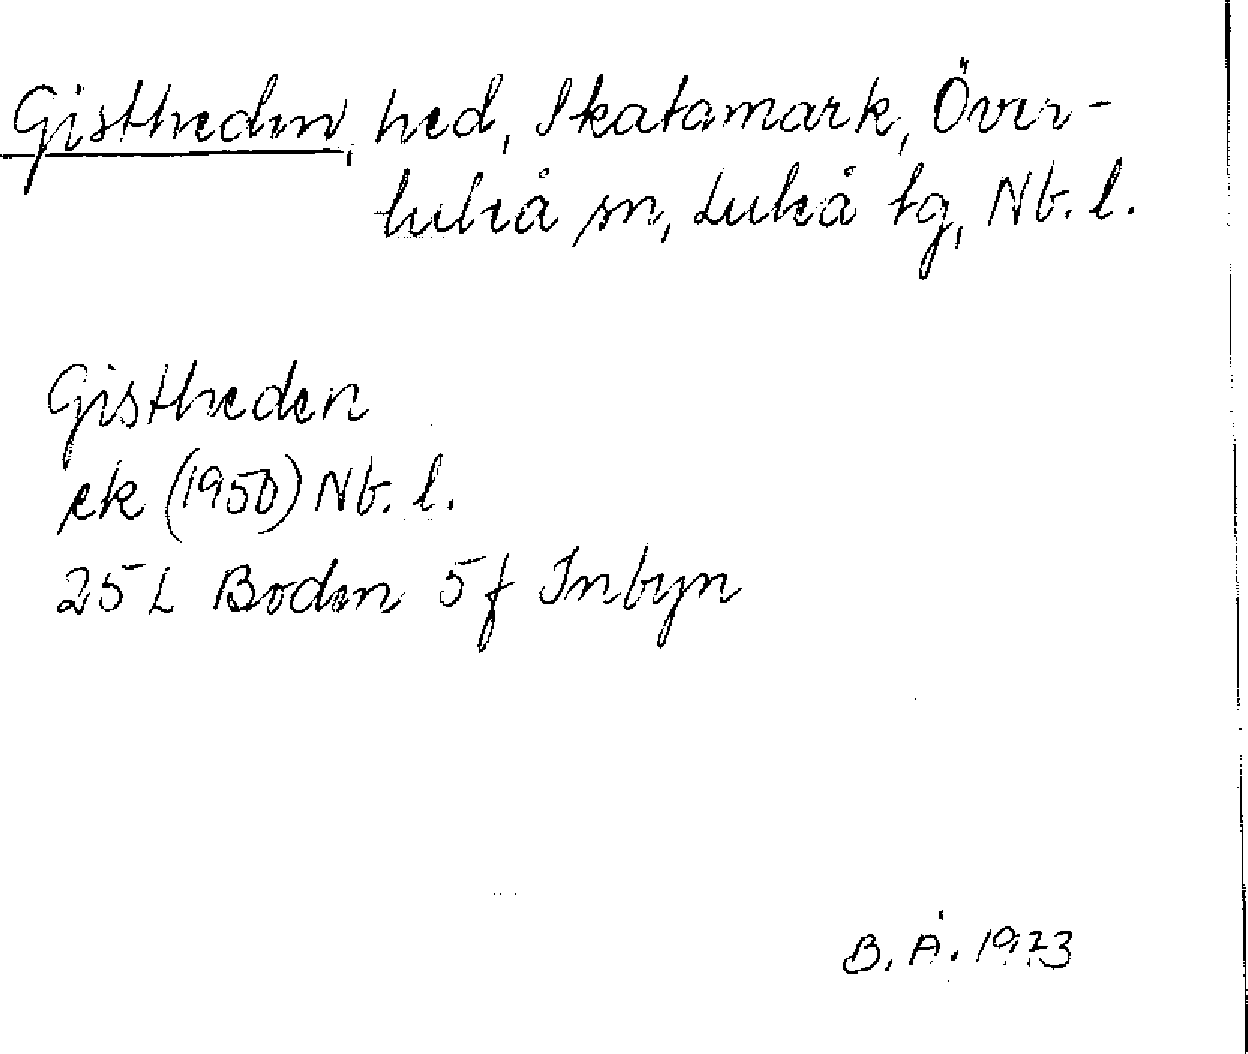 Gistheden, hed, Skatamark, Över-
luleå sn, Luleå tg, Nb. l.
Gistheden
ek (1950) Nb. l.
25 L Boden 5 f Inbyn
B. Å. 1973